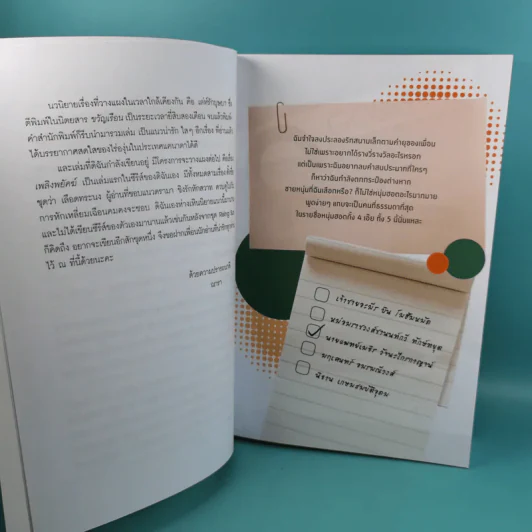 นวนิยายเรื่องที่วางแผงในเวลาใกล้เคียงกัน คือ
ตีพิมพ์ในนิตยสาร ขวัญเรือน เป็นระยะเวลายี่สิบสองเดือน จบแล้วพิมพ์
คำสำนักพิมพ์ก็รีบนำมารวมเล่ม เป็นแนวน่ารัก ใสๆ อีกเรื่อง ที่อ่านแล้ว
ได้บรรยากาศสดใสของไร่องุ่นในประเทศแคนาดาได้ดี
และเล่มที่ดิฉันกำลังเขียนอยู่ มีโครงการจะวางแผงต่อไป คือเรื่อง
เพลิงพยัคฆ์ เป็นเล่มแรกในซีรีส์ของดิฉันเอง
ชุดว่า เลือดทระนง ผู้อ่านที่ชอบแนวดรามา ชิงรักหักสวาท ควบคู่ไปกับ
การหักเหลี่ยมเฉือนคมคงจะชอบ
และไม่ได้เขียนซีรีส์ของตัวเองมานานแล้วเช่นกันหลังจากชุด
ก็คิดถึง อยากจะเขียนอีกสักชุดหนึ่ง จึงขอฝาก
ไว้ ณ ที่นี้ด้วยนะคะ
ด้วยความปรารถนาดี
ณารา
ฉันจำใจลงประลองรักสนามเล็กตามคำยุของเพื่อน
ไม่ใช่เพราะอยากได้รางวีรางวัลอะไรหรอก
แต่เป็นเพราะฉันอยากลบคำสบประมาทที่ใครๆ
ก็หาว่าฉันกำลังตกกระป๋องต่างหาก
ชายหนุ่มที่ฉันเลือกหรือ? ก็ไม่ใช่หนุ่มฮอตอะไรมากมาย
พูดง่ายๆ แทบจะเป็นคนที่ธรรมดาที่สุด
ในรายชื่อหนุ่มฮอตทั้ง 4 เอ๊ย ทั้ง 5 นี่นั่นแหละ
เจ้าชายอะมีร บิน โมฮัมหมัด
หม่อมราชวงศ์
นายแพทย์